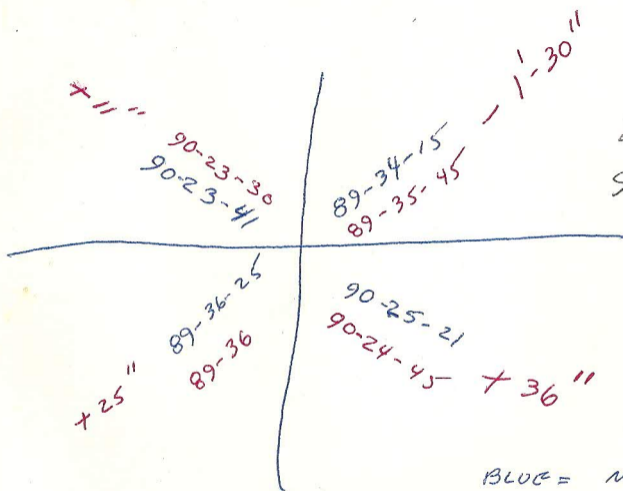 +11"
90-23-30
90-23-41
89-34-15
89-35-45
- 1'-30"
89-36-25
89-36
+25"
90-25-21
90-24-45
+36"
BLUE =